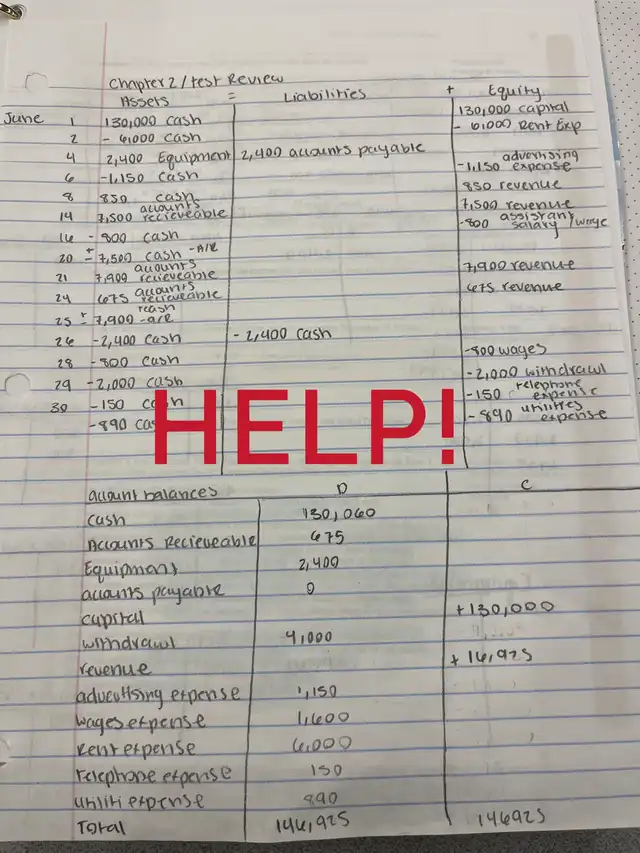 Chapter 2/test Review
Assets = Liabilities + Equity
June 1 130,000 cash 130,000 capital
2 - 6,000 cash - 6,000 Rent Exp
4 2,400 Equipment 2,400 accounts payable
6 -1,150 cash -1,150 advertising expense
8 850 cash 850 revenue
14 7,500 accounts recieveable 7,500 revenue
16 - 800 cash -800 assistant salary/wage
20 ± 7,500 cash -A/R
21 7,900 accounts recieveable 7,900 revenue
24 675 accounts recieveable 675 revenue
25 ± 7,900 cash -a/r
26 -2,400 cash - 2,400 cash
28 -800 cash -800 wages
29 -2,000 cash -2,000 withdrawl
30 -150 cash -150 telephone expense
-890 cas - 890 utilities expense
HELP!
account balances D C
cash 130,060
Accounts Recieveable 675
Equipment 2,400
accounts payable 0
capital +130,000
withdrawl 4,000
revenue +16,925
advertising expense 1,150
wages expense 1,600
Rent expense 6,000
telephone expense 150
utiliti expense 890
Total 146,925 146925